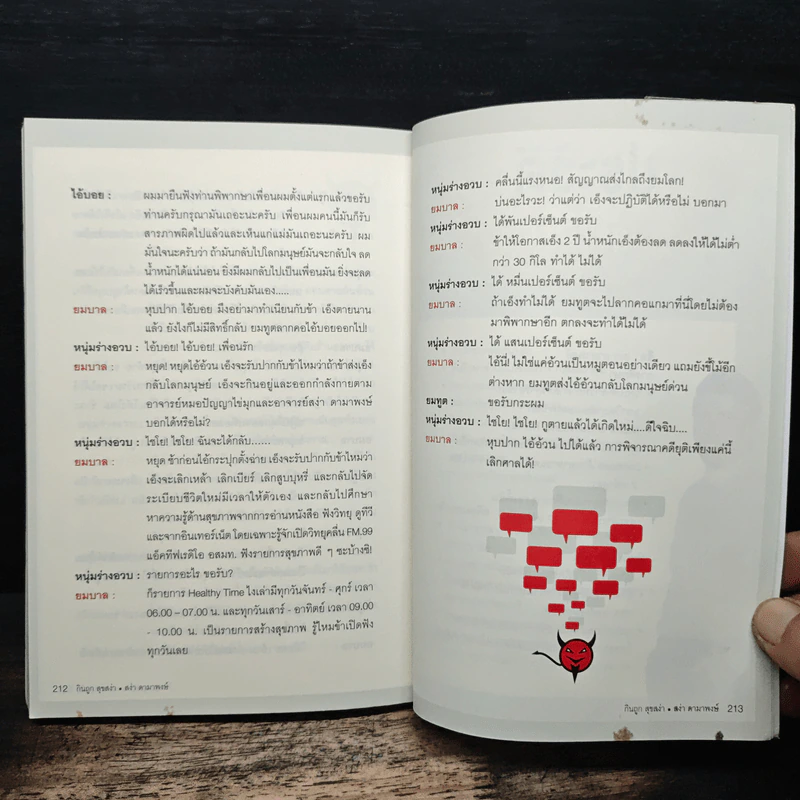 ไอ้บอย : ผมมายืนฟังท่านพิพากษาเพื่อนผมตั้งแต่แรกแล้วขอรับ
ท่านครับกรุณามันเถอะนะครับ เพื่อนผมคนนี้มันก็รับ
สารภาพผิดไปแล้วและเห็นแก่แม่มันเถอะนะครับ ผม
มั่นใจนะครับว่า ถ้ามันกลับไปโลกมนุษย์มันจะกลับใจ ลด
น้ำหนักได้แน่นอน ยิ่งมีผมกลับไปเป็นเพื่อนมัน ยิ่งจะลด
ได้เร็วขึ้นและผมจะบังคับมันเอง.....
ยมบาล : หุบปาก ไอ้บอย มึงอย่ามาทำเนียนกับข้า เอ็งตายนาน
แล้ว ยังไงก็ไม่มีสิทธิ์กลับ ยมทูตลากคอไอ้บอยออกไป!
หนุ่มร่างอวบ : ไอ้บอย! ไอ้บอย! เพื่อนรัก
ยมบาล : หยุด! หยุดไอ้อ้วน เอ็งจะรับปากกับข้าไหมว่าถ้าข้าส่งเอ็ง
กลับโลกมนุษย์ เอ็งจะกินอยู่และออกกำลังกายตาม
อาจารย์หมอปัญญาไข่มุกและอาจารย์สง่า ดามาพงษ์
บอกได้หรือไม่?
หนุ่มร่างอวบ : ไชโย! ไชโย! ฉันจะได้กลับ......
ยมบาล : หยุด ช้าก่อนไอ้กระปุกตั้งฉ่าย เอ็งจะรับปากกับข้าไหมว่า
เอ็งจะเลิกเหล้า เลิกเบียร์ เลิกสูบบุหรี่ และกลับไปจัด
ระเบียบชีวิตใหม่มีเวลาให้ตัวเอง และกลับไปศึกษา
หาความรู้ด้านสุขภาพจากการอ่านหนังสือ ฟังวิทยุ ดูทีวี
และจากอินเทอร์เน็ต โดยเฉพาะรู้จักเปิดวิทยุคลื่น FM.99
แอ็คทีฟเรดิโอ อสมท. ฟังรายการสุขภาพดี ๆ ซะบ้างซิ!
หนุ่มร่างอวบ : รายการอะไร ขอรับ?
ยมบาล : ก็รายการ Healthy Time ไงเล่ามีทุกวันจันทร์ - ศุกร์ เวลา
06.00 – 07.00 น. และทุกวันเสาร์ - อาทิตย์ เวลา 09.00
- 10.00 น. เป็นรายการสร้างสุขภาพ รู้ไหมข้าเปิดฟัง
ทุกวันเลย
212 กินถูก สุขสง่า • สง่า ดามาพงษ์
หนุ่มร่างอวบ : คลื่นนี้แรงหนอ! สัญญาณส่งไกลถึงยมโลก!
ยมบาล : บ่นอะไรวะ! ว่าแต่ว่า เอ็งจะปฏิบัติได้หรือไม่ บอกมา
หนุ่มร่างอวบ : ได้พันเปอร์เซ็นต์ ขอรับ
ยมบาล : ข้าให้โอกาสเอ็ง 2 ปี น้ำหนักเอ็งต้องลด ลดลงให้ได้ไม่ต่ำ
กว่า 30 กิโล ทำได้ ไม่ได้
หนุ่มร่างอวบ : ได้ หมื่นเปอร์เซ็นต์ ขอรับ
ยมบาล : ถ้าเอ็งทำไม่ได้ ยมทูตจะไปลากคอแกมาที่นี่โดยไม่ต้อง
มาพิพากษาอีก ตกลงจะทำได้ไม่ได้
หนุ่มร่างอวบ : ได้ แสนเปอร์เซ็นต์ ขอรับ
ยมบาล : ไอ้นี่! ไม่ใช่แค่อ้วนเป็นหมูตอนอย่างเดียว แถมยังขี้โม้อีก
ต่างหาก ยมทูตส่งไอ้อ้วนกลับโลกมนุษย์ด่วน
ยมทูต : ขอรับกระผม
หนุ่มร่างอวบ : ไชโย! ไชโย! กูตายแล้วได้เกิดใหม่....ดีใจฉิบ....
ยมบาล : หุบปาก ไอ้อ้วน ไปได้แล้ว การพิจารณาคดียุติเพียงแค่นี้
เลิกศาลได้!
กินถูก สุขสง่า • สง่า ดามาพงษ์ 213